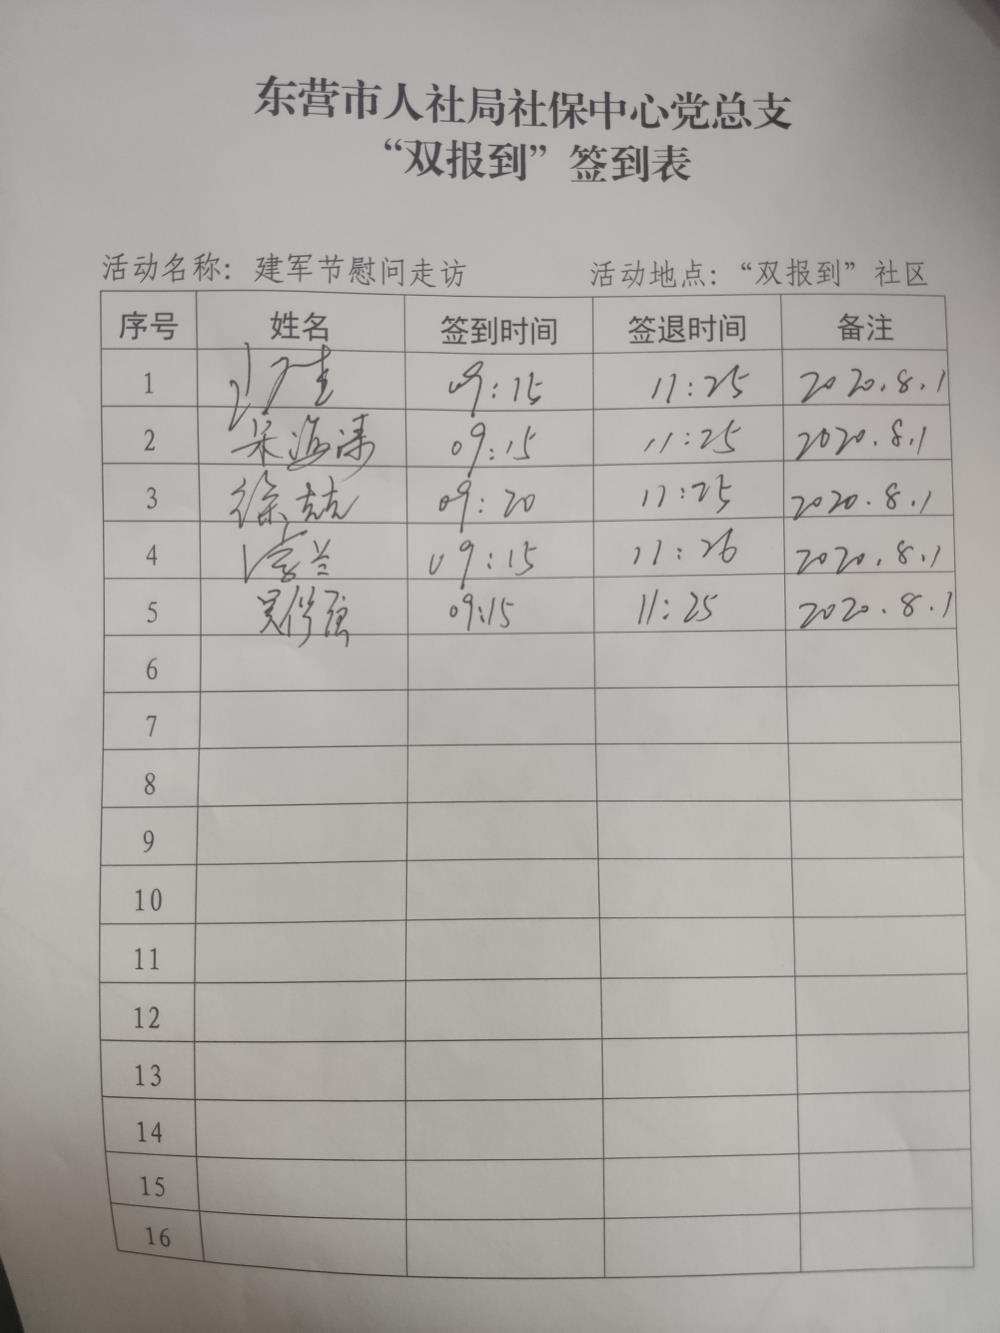 东营市人社局社保中心党总支
“双报到”签到表
活动名称：建军节慰问走访 活动地点：“双报到”社区
序号 姓名 签到时间 签退时间 备注
1 09:15 11:25 2020.8.1
2 宋海涛 09:15 11:25 2020.8.1
3 徐喆 09:20 11:25 2020.8.1
4 09:15 11:26 2020.8.1
5 吴修强 09:15 11:25 2020.8.1
6
7
8
9
10
11
12
13
14
15
16